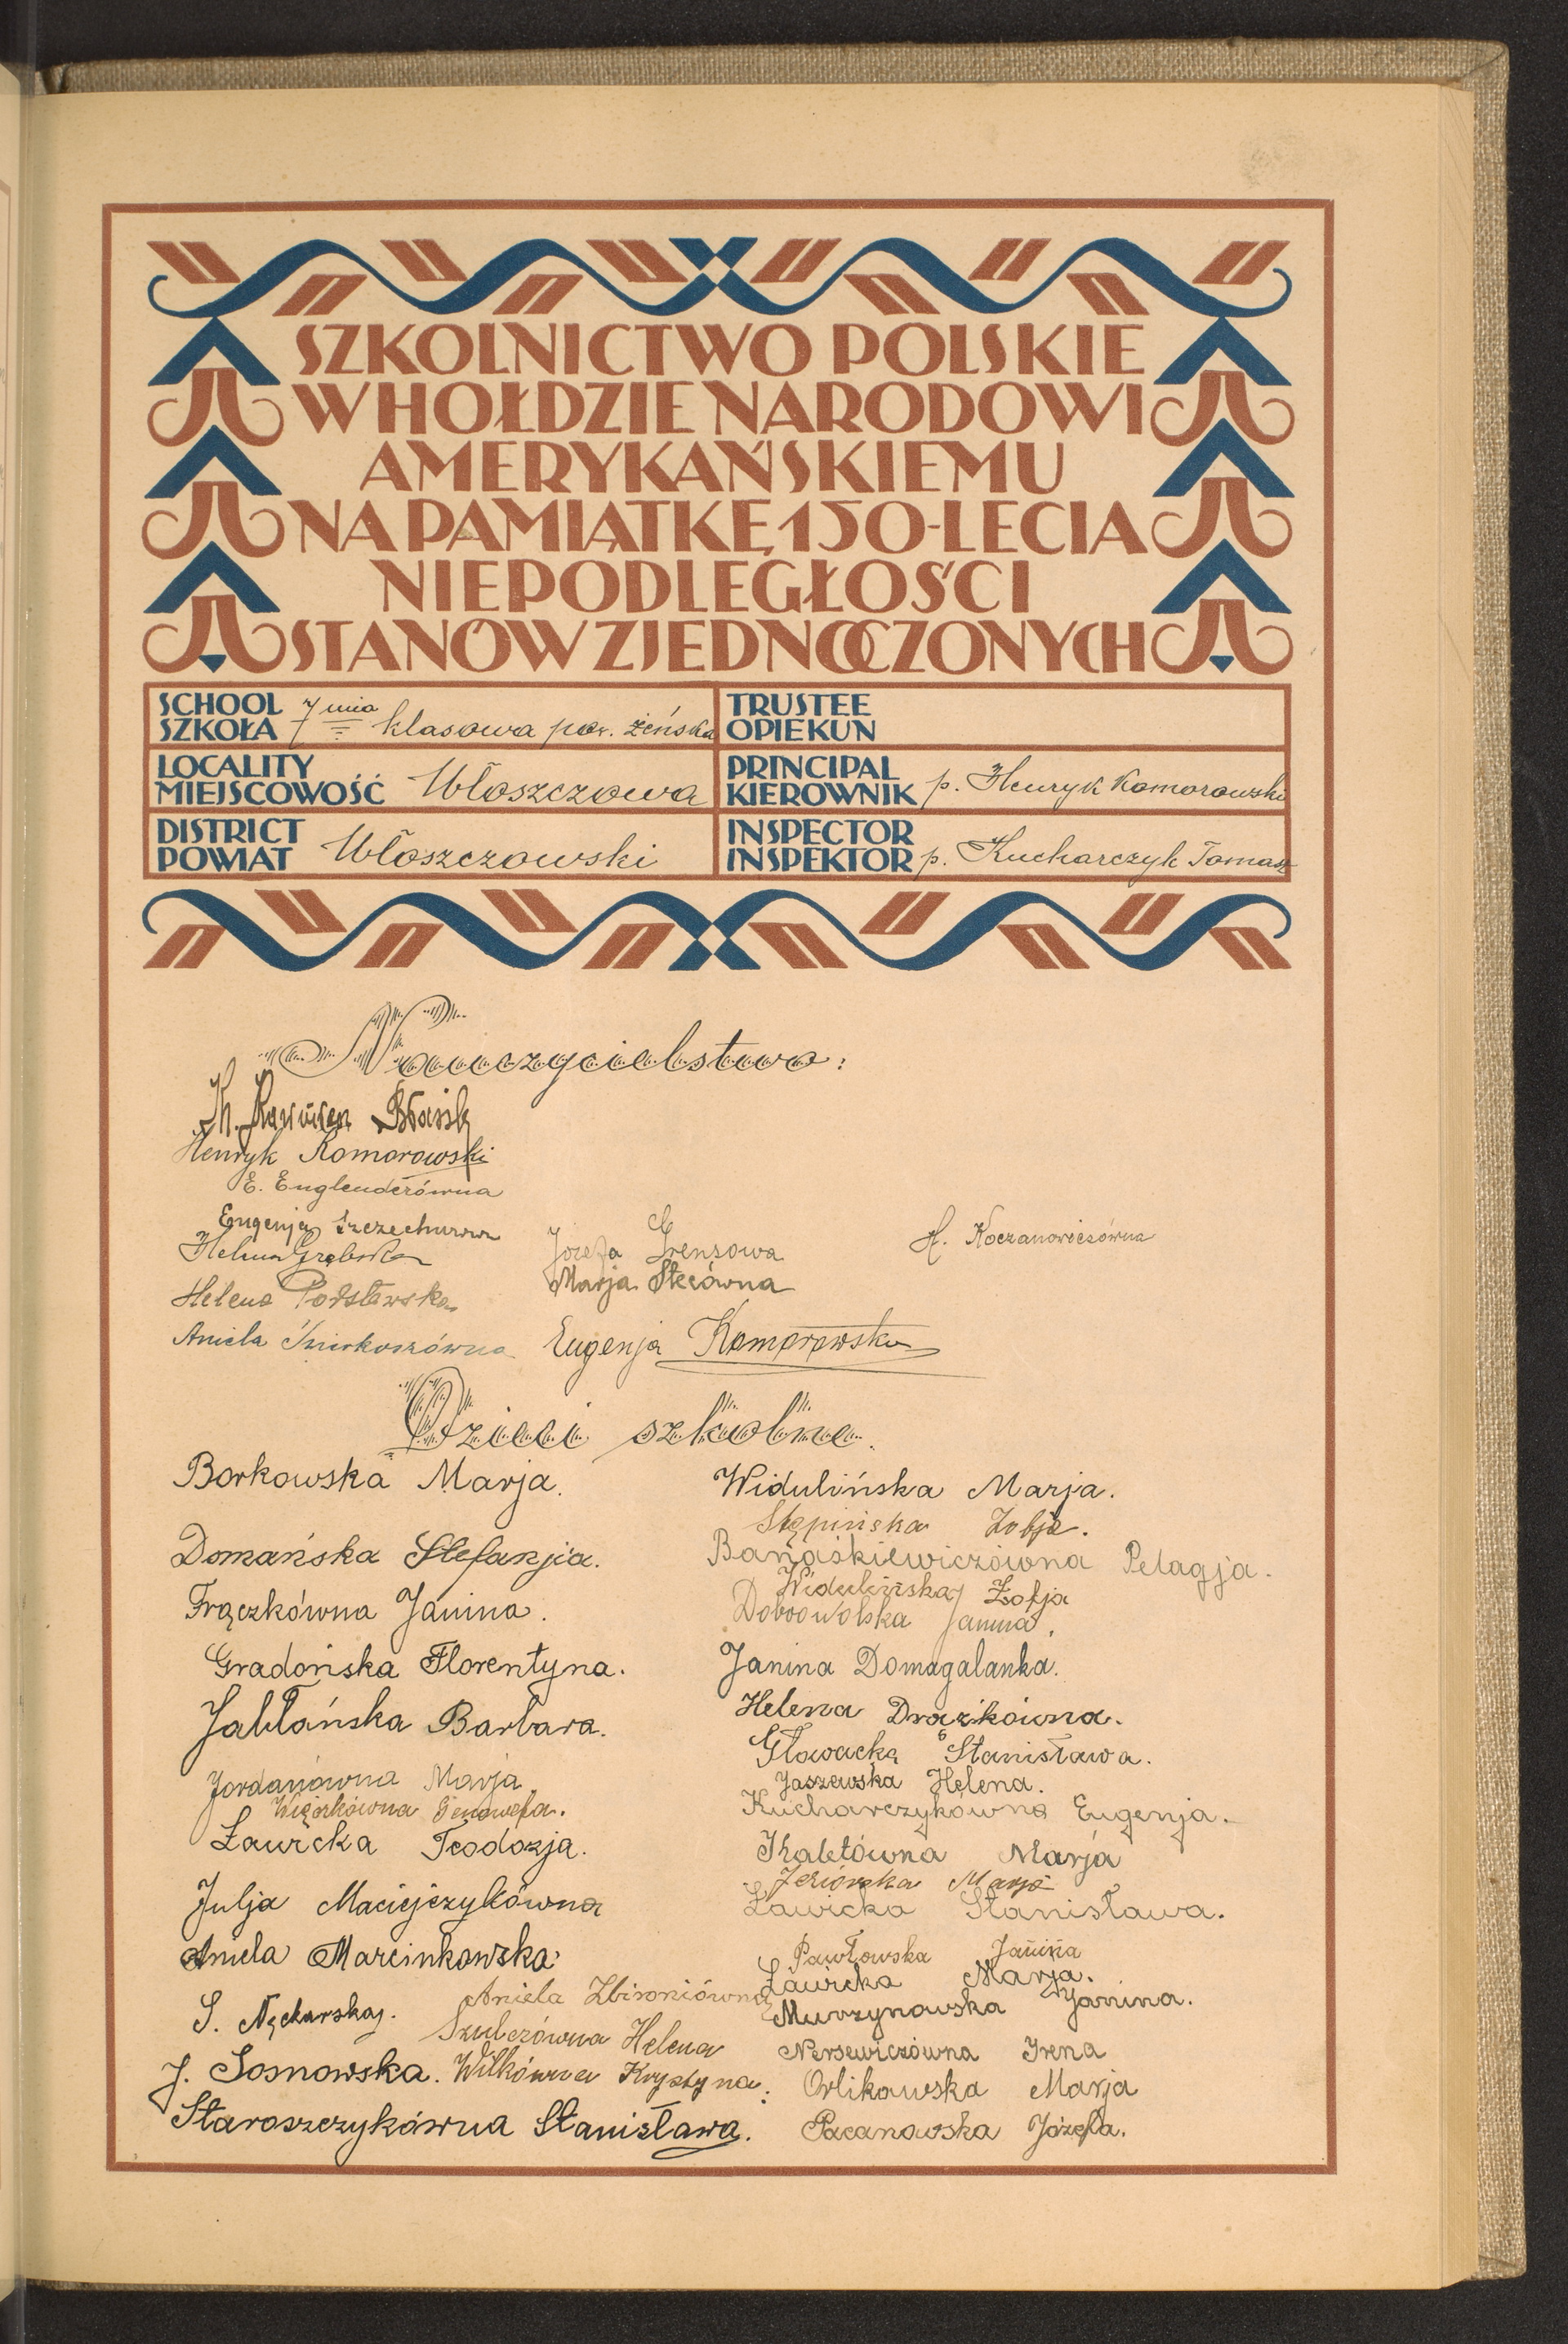 SZKOLNICTWO POLSKIE
W HOŁDZIE NARODOWI
AMERYKAŃSKIEMU
NA PAMIĄTKĘ 150-LECIA
NIEPODLEGŁOŚCI
STANÓW ZJEDNOCZONYCH
SCHOOL
SZKOŁA 7 mio klasowa pow. żeńska
TRUSTEE
OPIEKUN
LOCALITY
MIEJSCOWOŚĆ Włoszczowa
PRINCIPAL
KIEROWNIK p. Henryk Komorowski
DISTRICT
POWIAT Włoszczowski
INSPECTOR
INSPEKTOR p. Kucharczyk Tomasz
Nauczycielstwo:
Henryk Komorowski
E. Englenderówna
Eugenja
Helena Grabska
Helena
Aniela
Józefa
Marja Stecówna
Eugenja Komorowska
H. Koczanowiczówna
Dzieci szkolne.
Borkowska Marja.
Domańska Stefanja.
Frączkówna Janina.
Gradońska Florentyna.
Jabłańska Barbara.
Jordanówna Marja
Wiązkówna Genowefa.
Ławicka Teodozja.
Julja Maciejczykówna
Aniela Marcinkowska
S. Nęckarska.
Aniela Zbironiówna
Szulcówna Helena
J. Sosnowska. Wilkówna Krystyna.
Staroszczykówna Stanisława.
Widulińska Marja.
Stępińska Zofja.
Banaśkiewiczówna Pelagja.
Widulińska Zofja
Dobrowolska Janina.
Janina Domagalanka.
Helena Drazikówna.
Głowacka Stanisława.
Jaszewska Helena.
Kucharczykówna Eugenja.
Kaletówna Marja
Jeziórska Marja
Ławicka Stanisława.
Pawłowska Janina
Ławicka Marja.
Murzynowska Janina.
Nersewiczówna Irena
Orlikowska Marja
Pacanowska Józefa.